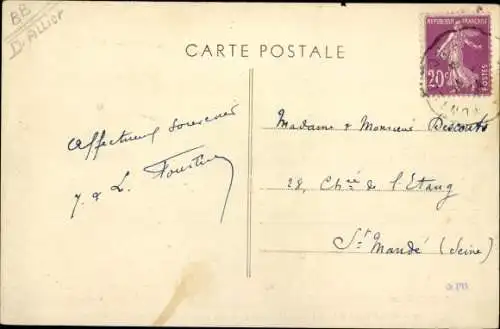 BB
D. Allier
CARTE POSTALE
REPUBLIQUE FRANÇAISE
20c
POSTES
Affectueux souvenir
Madame & Monsieur Descouts
22, Ch.ée de l'Etang
St Mandé (Seine)